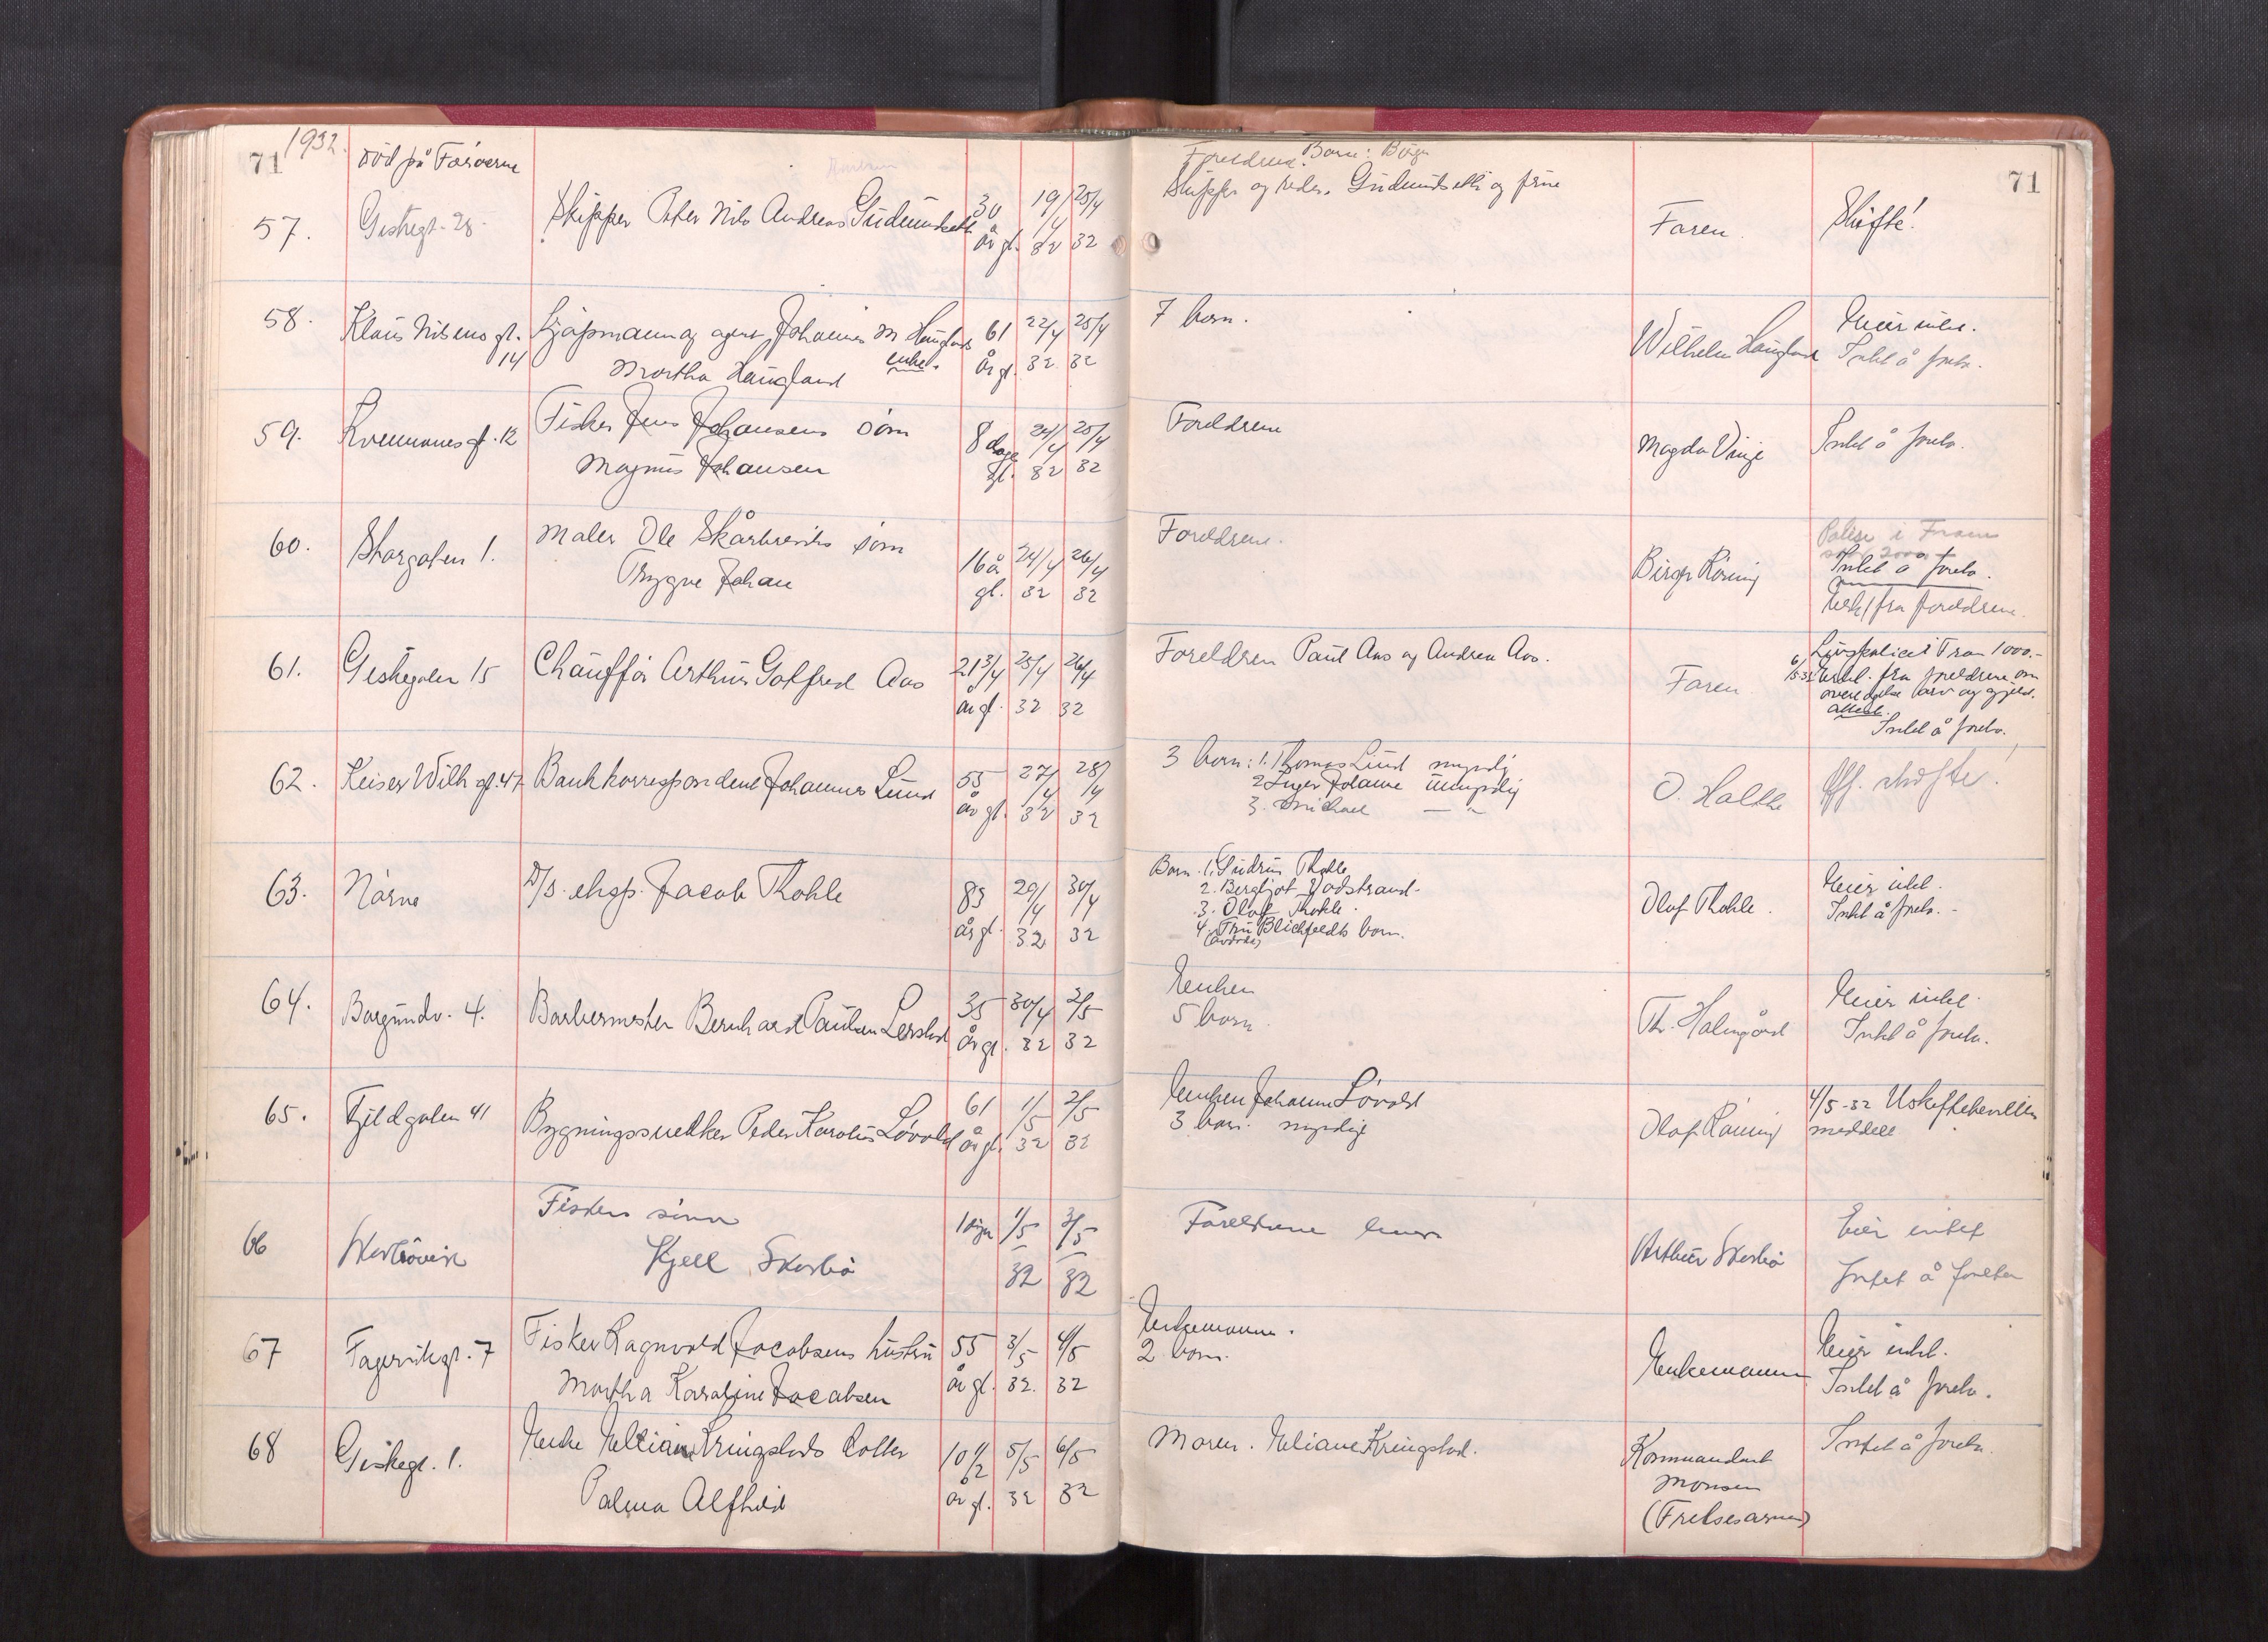 71 1932.
død på Færøerne
57. Giskegt. 28 Skipper Peter Nils Andreas Gudmundseth 30 år gl. 19/4 32 25/4 32
Foreldrene. Barn: Börge
Skipper og reder. Gudmundseth og frue
Faren. Skifte!
71
58. Klaus Nilsens gt. 14 Kjøpmann og agent Johannes M Hauglands enke. 61 år gl. 22/4 32 25/4 32
Martha Haugland
7 barn. Wilhelm Haugland Eier intet.
Intet å foreta.
59. Kremmergt. 12 Fisker Jens Johansens sønn 8 dage gl. 24/4 32 25/4 32
Magnus Johansen
Foreldrene Magda Vinje Intet å foreta.
60. Storgaten 1. Maler Ole Skårbreviks sønn 16 år gl. 24/4 32 26/4 32
Trygve Johan
Foreldrene. Birger Röning
Polise i Fram
2000
Intet å foreta.
Erkl. fra foreldrene.
61. Giskegaten 15 Chauffør Arthur Gotfred Aas 21 3/4 år gl. 25/4 32 26/4 32
Foreldrene Paul Aas og Andrea Aas. Faren
Livspolice i Fram 1000.-
6/5-32 Erkl. fra foreldrene om
overtagelse arv og gjeld.
Attest.
Intet å foreta.
62. Keiser Wilh gt. 47 Bankkorrespondent Johannes Lund 55 år gl. 27/4 32 28/4 32
3 barn: 1. Thomas Lund myndig
2 Inger Johanne umyndig
3. Michael — " —
O. Holthe Off. skifte!
63. Nörve D/s. eksp. Jacob Thokle 83 år gl. 29/4 32 30/4 32
Barn. 1. Gudrun Thokle
2. Bergljot Vadstrand.
3. Olaf Thokle.
4. Fru Blichfeldts barn.
Olaf Thokle. Eier intet.
Intet å foreta.
64. Borgundv. 4. Barbermester Bernhard Paulsen Lerstad 35 år gl. 30/4 32 2/5 32
Enken
5 barn.
Th. Holmgård Eier intet.
Intet å foreta.
65. Fjeldgaten 41 Bygningssnekker Peder Karolius Løvold 61 år gl. 1/5 32 2/5 32
Enken Johanne Løvold
3 barn. myndige
Olaf Röning 4/5-32 Uskiftebevilling
meddelt
66 Fiskers sønn 1 dgn 1/5 32 3/5 32
Kjell Skorbö
Foreldrene lever Arthur Skorbö Eier intet
Intet å foreta
67 Fagervikgt. 7 Fisker Ragnvald Jacobsens hustru 55 år gl. 3/5 32. 4/5 32
Martha Karoline Jacobsen
Enkemannen.
2 barn.
Enkemannen Eier intet.
Intet å foreta.
68 Giskegt. 1. Enke Eliane Kringstads datter 10 1/2 år gl. 5/5 32 6/5 32
Palma Alfhild
Moren. Eliane Kringstad. Kommandant
Monsen
(Frelsesarmeen)
Intet å foreta.